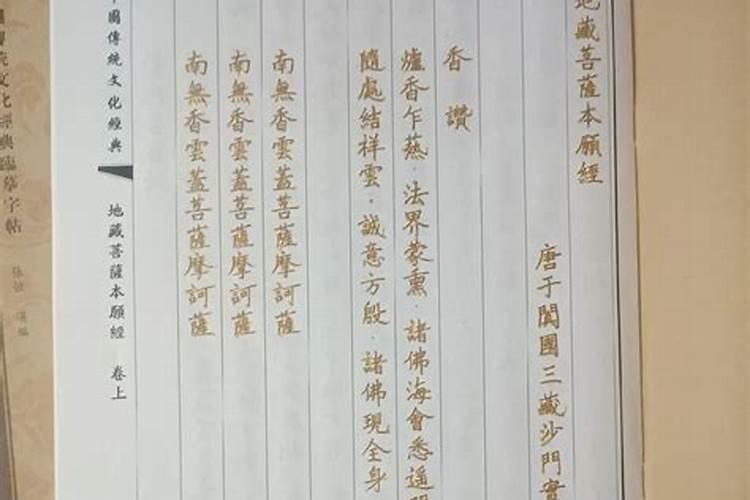 地藏菩薩本願經
唐于闐國三藏沙門實
香讚
爐香乍爇．法界蒙熏．諸佛海會悉遙
隨處結祥雲．誠意方殷．諸佛現全身
南無香雲蓋菩薩摩訶薩
南無香雲蓋菩薩摩訶薩
南無香雲蓋菩薩摩訶薩
國傳統文化經典
地藏菩薩本願經 卷上
文化經典臨摹字帖